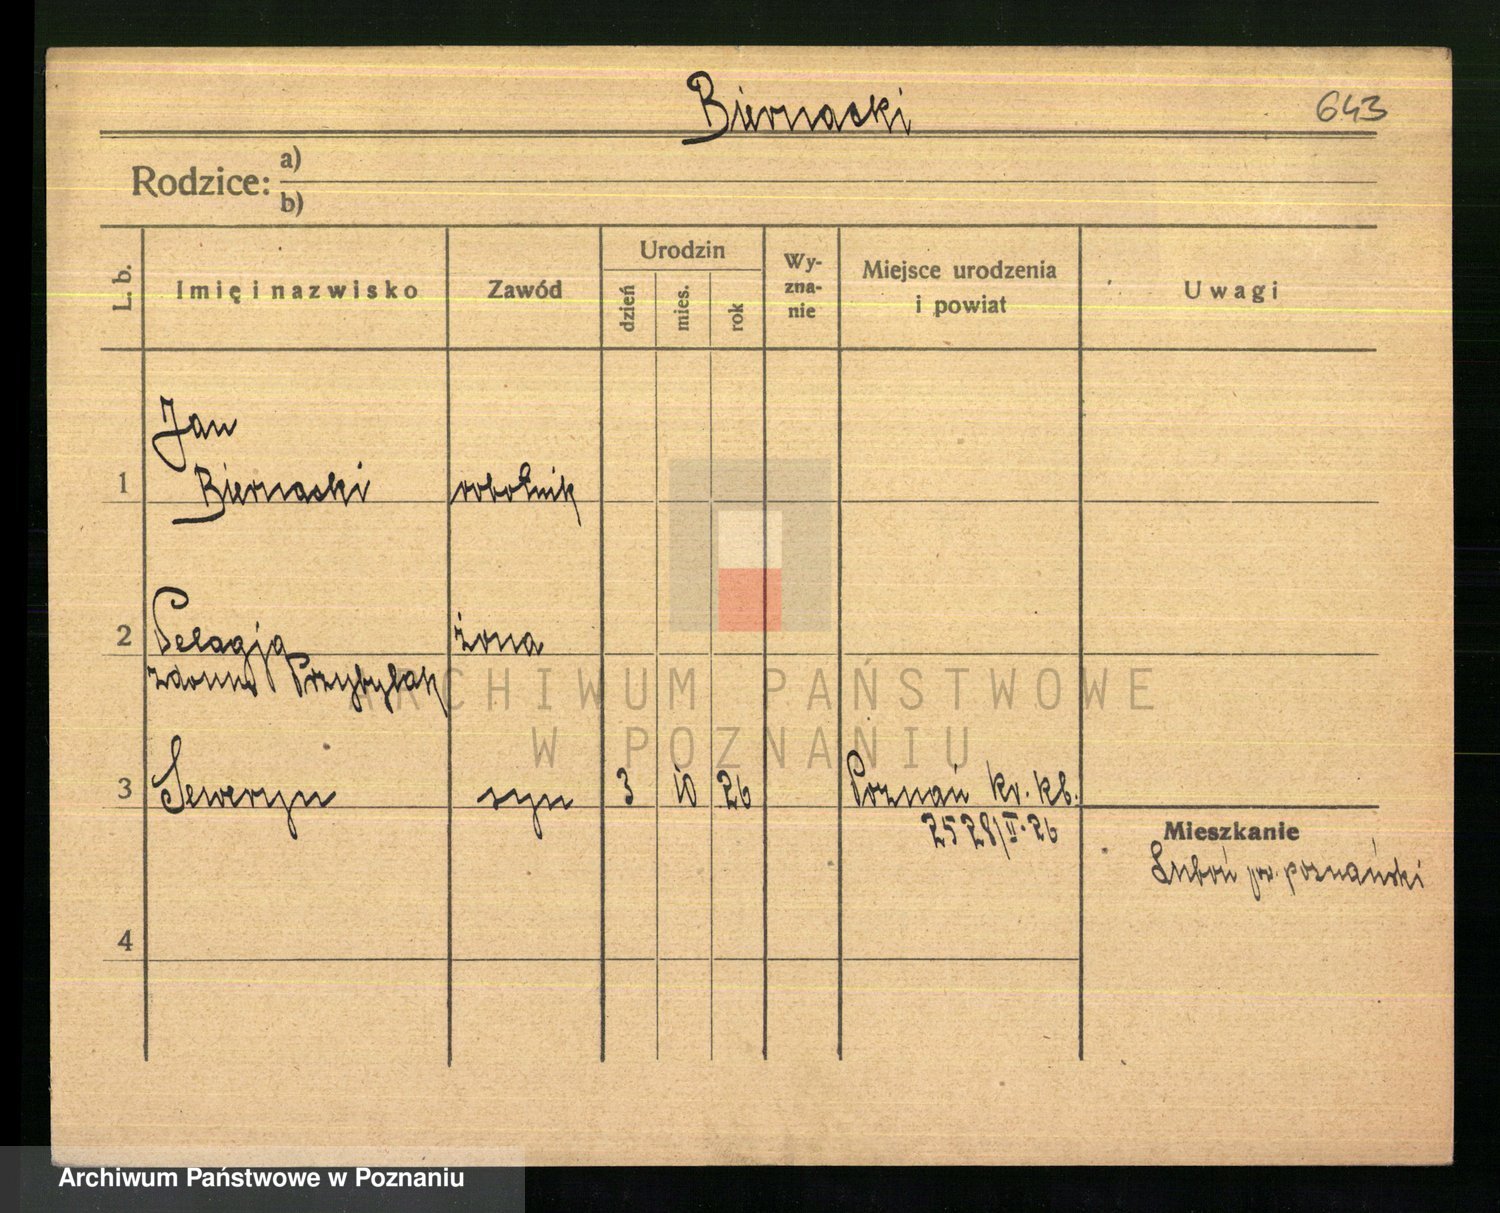 Biernacki
643
Rodzice: a)
b)
L. b.
Imię i nazwisko
Zawód
Urodzin
dzień
mies.
rok
Wy-
zna-
nie
Miejsce urodzenia
i powiat
Uwagi
Jan
1 Biernacki robotnik
2 Pelagja żona
Przybylak
ARCHIWUM PAŃSTWOWE
W POZNANIU
3 Seweryn syn 3 10 26 Poznań
26
Mieszkanie
Luboń pow. poznański
4
Archiwum Państwowe w Poznaniu